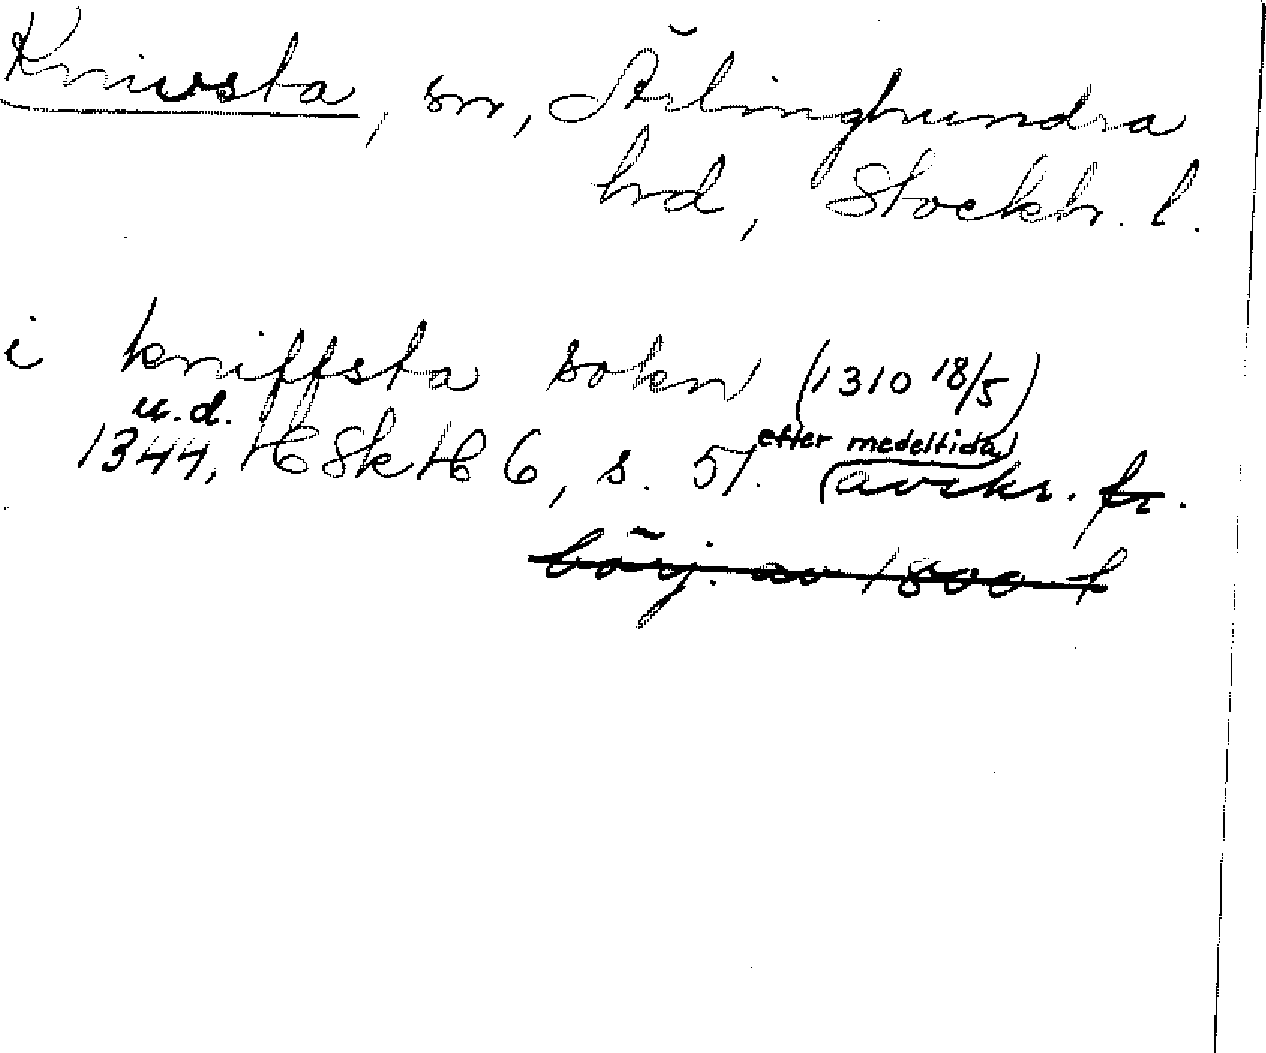 Knivsta, sn, Ärlinghundra
hd, Stockh. l.
i kniffsta sokn (1310 18/5)
u.d.
1344, HSkH 6, s. 51. (efter medeltida) avskr. fr.
börj. av 1800-t